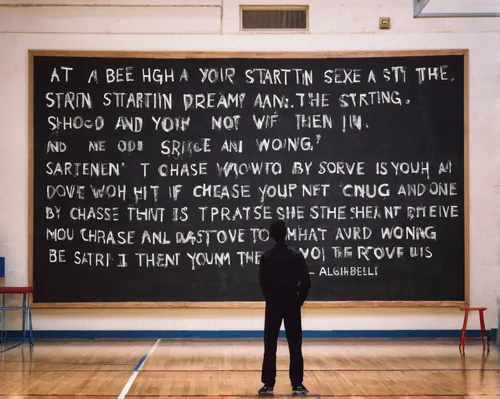 AT A BEE HGH A YOIR STARTTIN SEXE A STI THE.
STRIN STARTIIN DREAMY AAN.. THE STRTING.
SHOGO AND YOIY NOT WIF THEN IN.
AND NE ODI SRIGE ANI WONG.'
SARTENEN' T CHASE BY SORVE IS YOUH AI
DOVE WOH HIT IF CHEASE YOUP NET CNUG AND ONE
BY CHASSE THINT IS TPRATSE SHE STHE SHE ANT
MOU CHRASE ANL TO MHAT AVRD WONNG
BE SATRI I THENT YOUM THE VOI
- ALGHBELLI